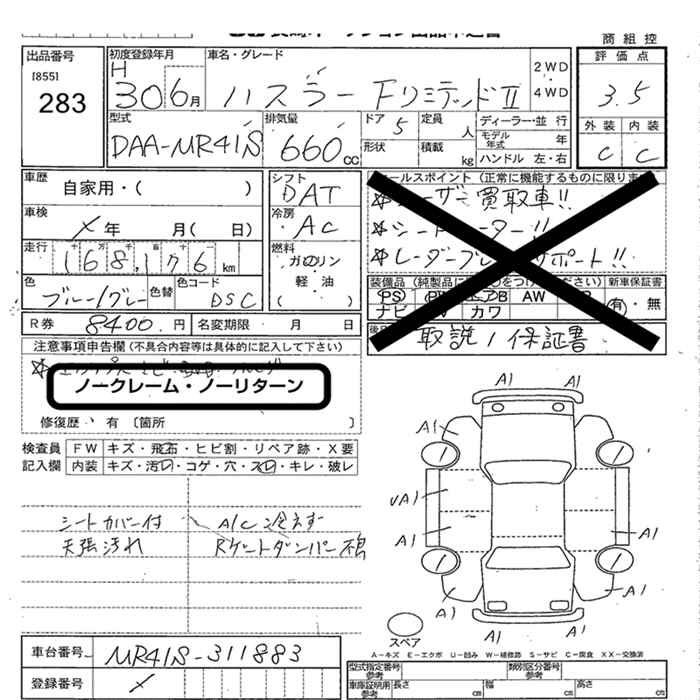 商 組 控
出品番号
[8551]
283
初度登録年月
H
30 6月
車名・グレード
ハスラー FリミテッドⅡ
2WD
4WD
評 価 点
3.5
外 装 内 装
C C
型式
DAA-MR41S
排気量
660cc
ドア 5
形状
定員 人
積載 kg
ディーラー・並 行
モデル年式 年
ハンドル 左・右
車歴
自家用・( )
車検
✗年 月( 日)
走行
十 万 千 百 十 一
168,176km
色
ブルー/グレー
色替
色コード
DSC
シフト
DAT
冷房
AC
燃料
ガソリン
軽 油
( )
セールスポイント (正常に機能するものに限ります
☆ユーザー買取車!!
☆シートヒーター!!
☆レーダーブレーキサポート!!
装備品 (純製品に○をつけて
新車保証書
PS エアB AW
ナビ カワ
有・無
取説/保証書
R券 8400.円
名変期限 月 日
注意事項申告欄 (不具合内容等は具体的に記入して下さい)
ノークレーム・ノーリターン
修復歴・有 〔箇所 〕
検査員
記入欄
FW キズ・飛石・ヒビ割・リペア跡・X要
内装 キズ・汚レ・コゲ・穴・スレ・キレ・破レ
シートカバー付 A/C冷えず
天張汚れ Rゲートダンパー不良
A1
A1
A1
UA1
A1
A1
A1
A1
A1
スペア
A-キズ E-エクボ U-凹み W-補修跡 S-サビ C-腐食 XX-交換済
車台番号 MR41S-311883
登録番号 ✗
型式指定番号
参考
類別区分番号
参考
車庫証明用
参考
長さ cm
幅 cm
高さ cm